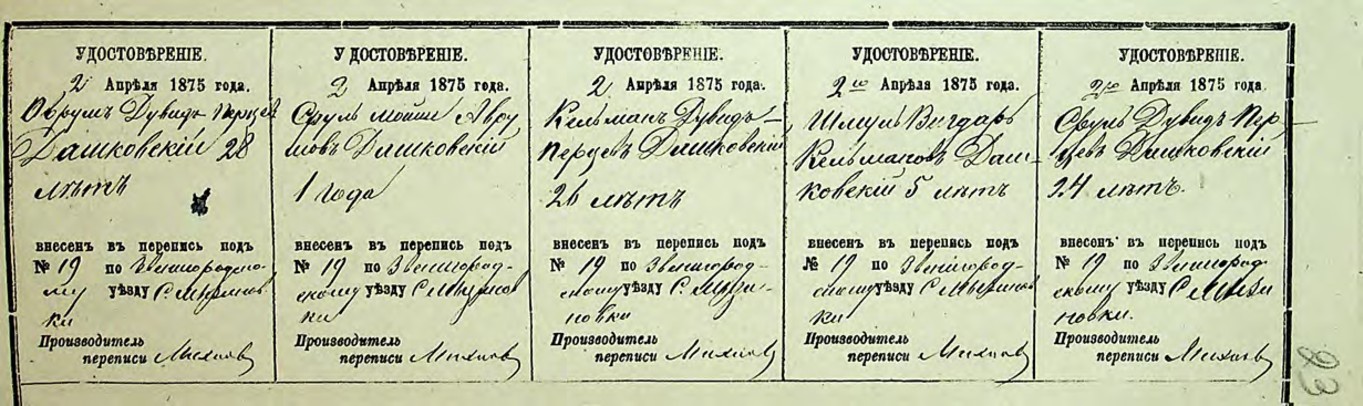 УДОСТОВѢРЕНІЕ.
2 Апрѣля 1875 года.
Дувидъ
Дашковскій 28
лѣтъ
внесенъ въ перепись подъ
№ 19 по Звенигородско-
му уѣзду С.
ки
Производитель
переписи
УДОСТОВѢРЕНІЕ.
2 Апрѣля 1875 года.
Сруль Авру
мовъ Дашковскій
1 года
внесенъ въ перепись подъ
№ 19 по Звенигород-
скому уѣзду С.
ки
Производитель
переписи
УДОСТОВѢРЕНІЕ.
2 Апрѣля 1875 года.
Кельманъ Дувидъ-
Перцевъ Дашковскій
26 лѣтъ
внесенъ въ перепись подъ
№ 19 по Звенигород-
скому уѣзду С.
новки
Производитель
переписи
УДОСТОВѢРЕНІЕ.
2го Апрѣля 1875 года.
Шмуль
Кельмановъ Даш-
ковскій 5 лѣтъ
внесенъ въ перепись подъ
№ 19 по Звенигород-
скому уѣзду С.
ки
Производитель
переписи
УДОСТОВѢРЕНІЕ.
2го Апрѣля 1875 года.
Сруль Дувидъ Пер-
цевъ Дашковскій
24 лѣтъ.
внесенъ въ перепись подъ
№ 19 по Звенигород
скому уѣзду С.
новки.
Производитель
переписи